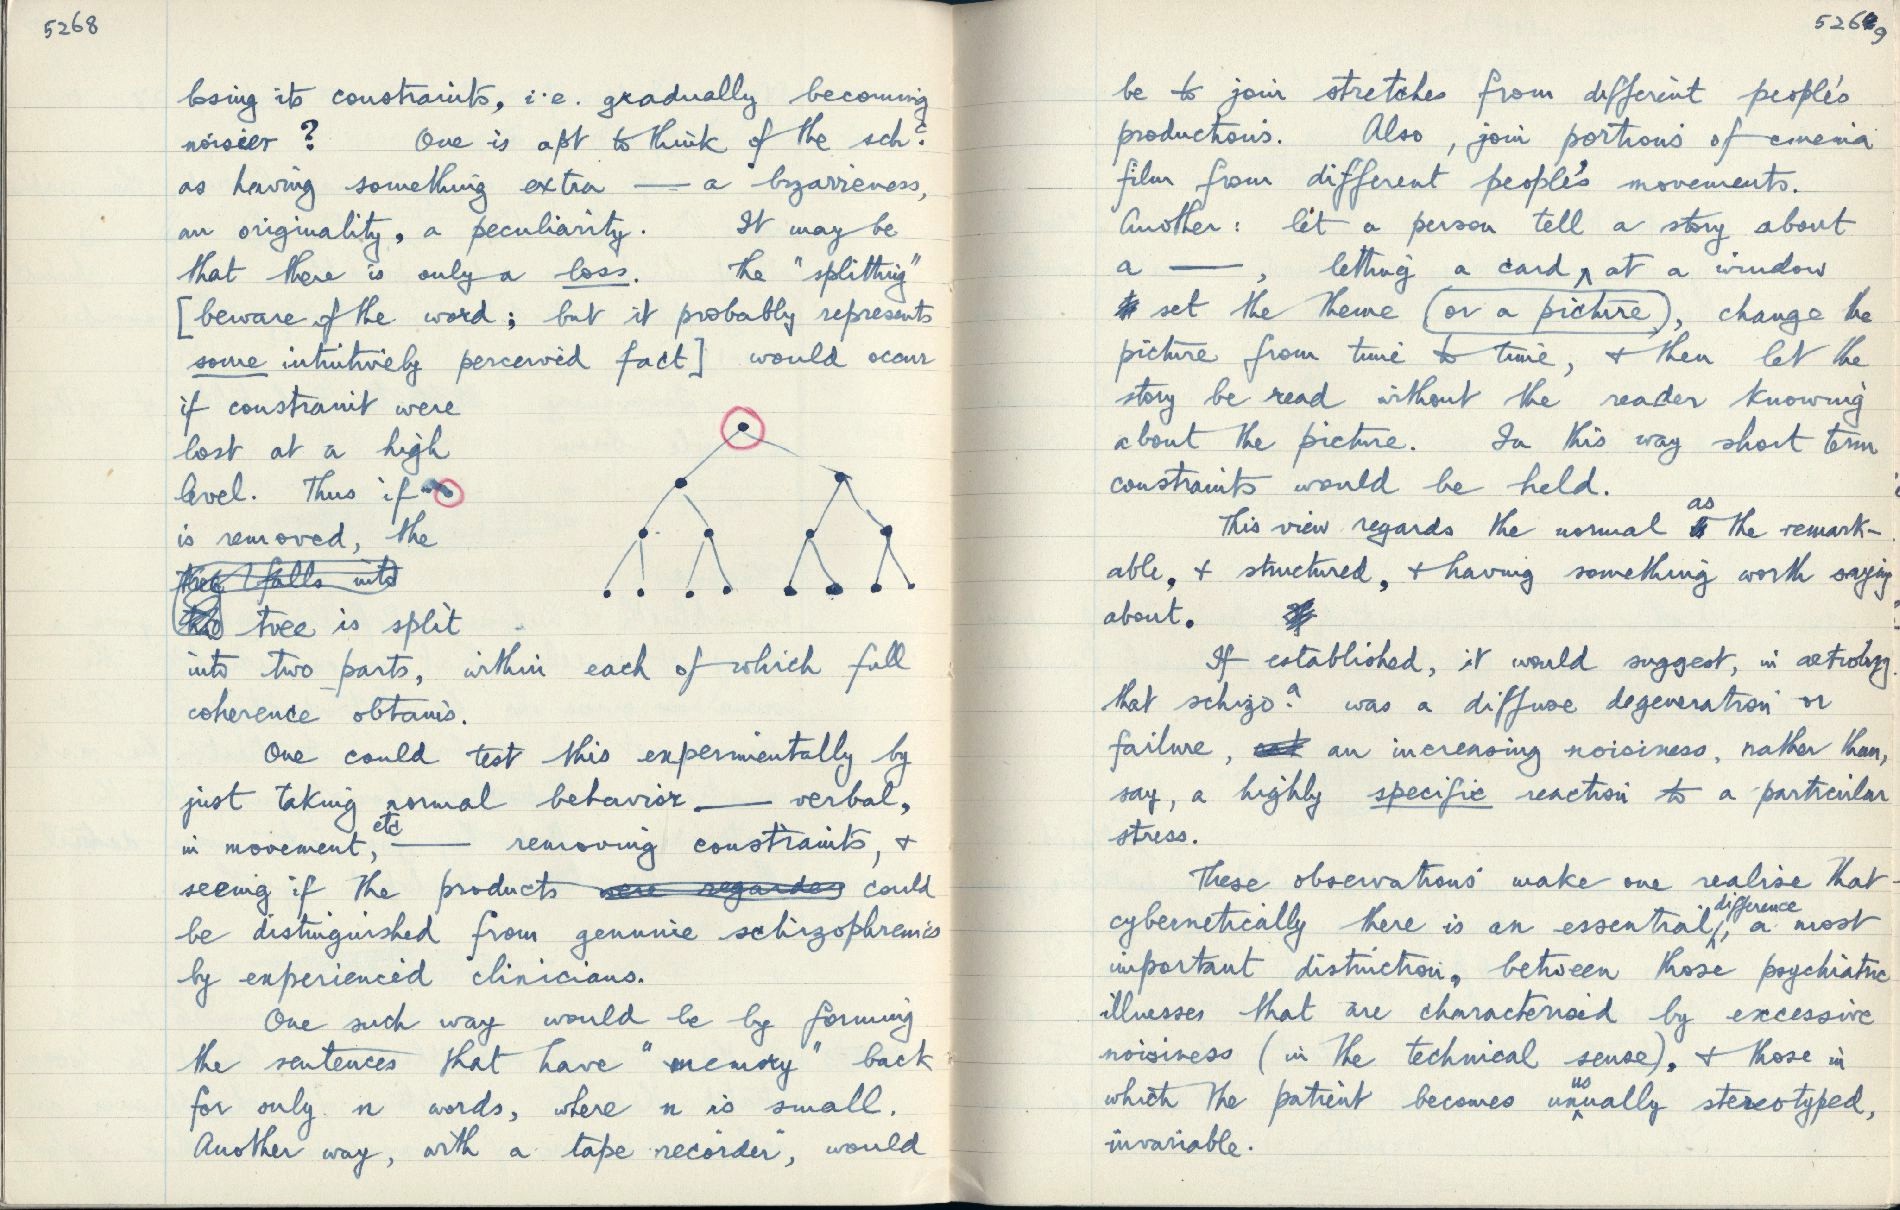 5268
losing its constraints, i.e. gradually becoming
noisier ? One is apt to think of the sch?
as having something extra — a bizarreness,
an originality, a peculiarity. It may be
that there is only a loss. The "splitting"
[beware of the word; but it probably represents
some intuitively perceived fact] would occur
if constraint were
lost at a high
level. Thus if
is removed, the
tree falls into
two tree is split
into two parts, within each of which full
coherence obtains.
One could test this experimentally by
just taking normal behavior — verbal,
in movement, etc — removing constraints, &
seeing if the products were regarded could
be distinguished from genuine schizophrenics
by experienced clinicians.
One such way would be by forming
the sentences that have "memory" back
for only n words, where n is small.
Another way, with a tape recorder, would
5269
be to join stretches from different people's
productions. Also, join portions of cinema
film from different people's movements.
Another: let a person tell a story about
a —, letting a card at a window
set the theme (or a picture), change the
picture from time to time, & then let the
story be read without the reader knowing
about the picture. In this way short term
constraints would be held.
This view regards the normal as the remark-
able, & structured, & having something worth saying
about.
If established, it would suggest, in aetiology
that schizo?a was a diffuse degeneration or
failure, an increasing noisiness, rather than,
say, a highly specific reaction to a particular
stress.
These observations make one realise that
cybernetically there is an essential difference, a most
important distinction, between those psychiatric
illnesses that are characterised by excessive
noisiness (in the technical sense), & those in
which the patient becomes unusually stereotyped,
invariable.